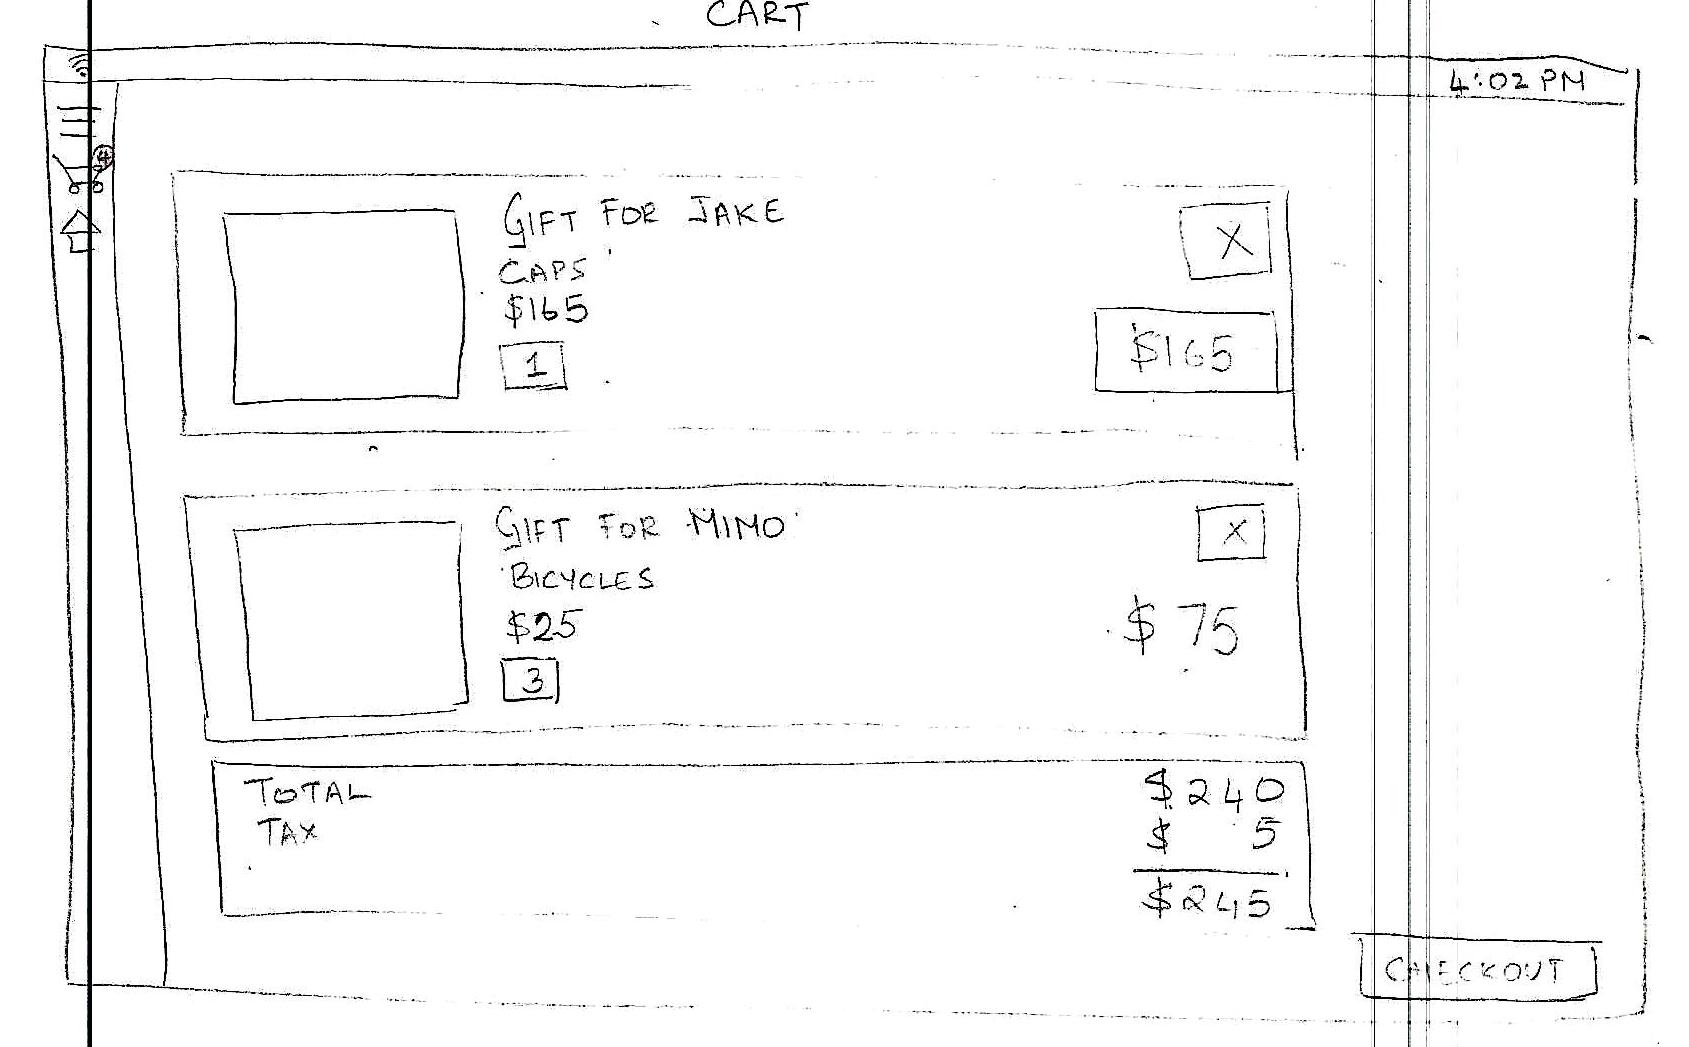 CART
4:02 PM
4
GIFT FOR JAKE
CAPS
$165
1
X
$165
GIFT FOR MIMO
BICYCLES
$25
3
X
$75
TOTAL $240
TAX $ 5
$245
CHECKOUT